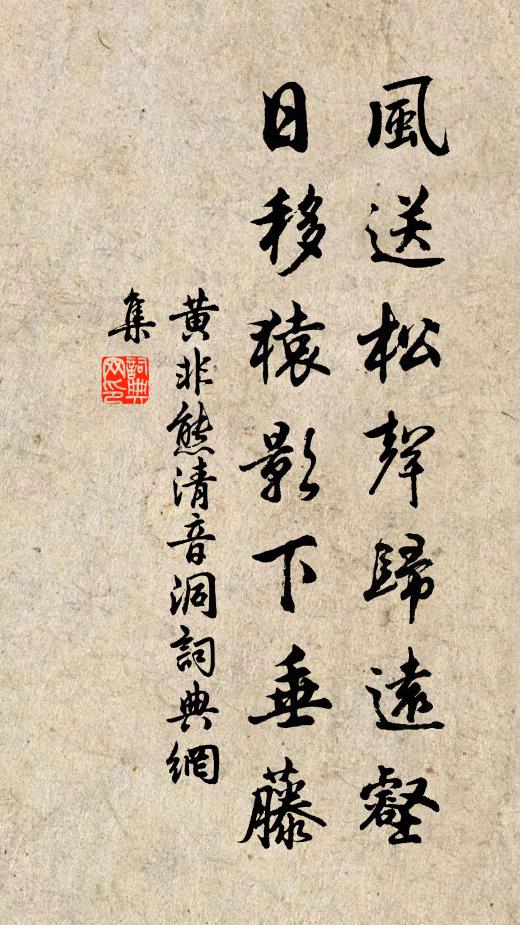 風送松聲歸遠壑
日移猿影下垂藤
黃非熊清音洞詞典網
集
詞典
网印